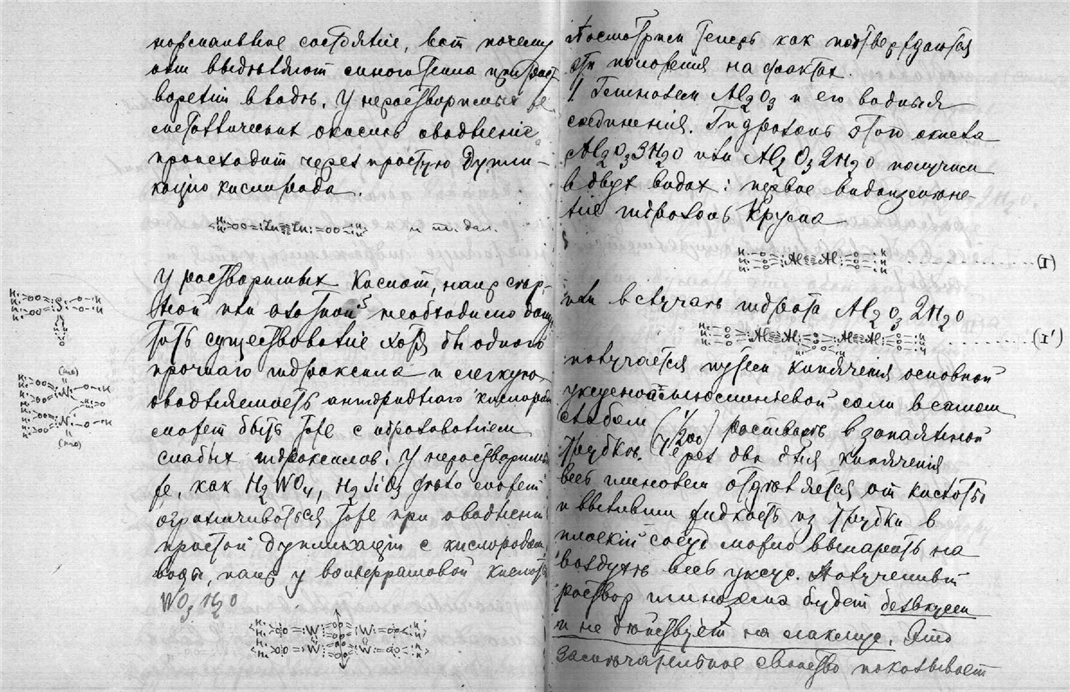 нормальное состояніе, вотъ почему
они выдѣляютъ много тепла при раст
вореніи въ водѣ. У нерастворимыхъ ме
таллическихъ окисловъ оводненіе
происходитъ черезъ простую дупли-
кацію кислорода.
и т. дал.
У растворимыхъ кислотъ, напр сѣр-
ной или азотной необходимо допус
тить существованіе хотя бы одного
прочнаго гидроксила и легкую
оводняемость ангидриднаго кислорода
можетъ быть тоже с образованіем
слабыхъ гидроксилов. У нерастворимых
же, какъ H2WO4, H2SiO3 дѣло можетъ
ограничиваться тоже при оводненіи
простой дупликаціи с кислородомъ
воды, напр у вольфрамовой кислоты
WO3 H2O
Посмотримъ теперь какъ подтверждаются
эти положенія на фактахъ.
Глиноземъ Al2O3 и его водныя
соединенія. Гидрозоль этого окисла
Al2O3 3H2O или Al2O3 2H2O получили
в двухъ видахъ: первое видоизмѣне-
ніе гидрозоль Крума
(I)
или в случаѣ гидрата Al2O3 2H2O
(I')
получается путемъ кипяченія основной
уксусноалюминіевой соли в самомъ
слабомъ (1/200) растворѣ в запаянной
трубкѣ. Черезъ два дня кипяченія
весь глиноземъ отдѣляется отъ кислоты
и выливши жидкость изъ трубки в
плоскій сосудъ можно выпарить на
воздухѣ весь уксусъ. Полученный
растворъ глинозема будетъ безвкусен
и не дѣйствуетъ на лакмус. Это
заключительное свойство показываетъ